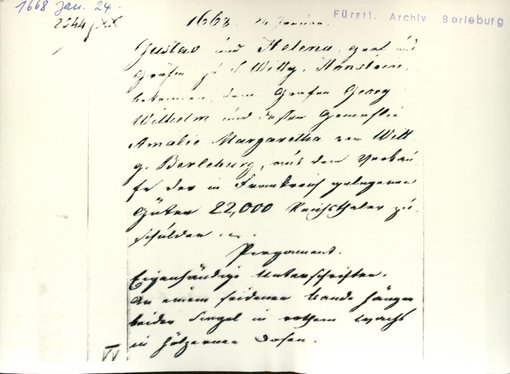 1668 Jan. 24.
Fürstl. Archiv Berleburg
1668. 24 Januar.
Gustav und Helena, Graf und
Gräfin zu S. Wittg. Honstein,
bekennen, dem Grafen Georg
Wilhelm und dessen Gemahlin
Amalie Margaretha von Witt
g. Berleburg, aus dem Verkau
fe der in Frankreich gelegenen
Güter 22,000 Reichsthaler zu
schulden
Pergament.
Eigenhändige Unterschriften.
An einem seidenen Bande hängen
beider Siegel in rothem Wachs
in hölzernen Dosen.